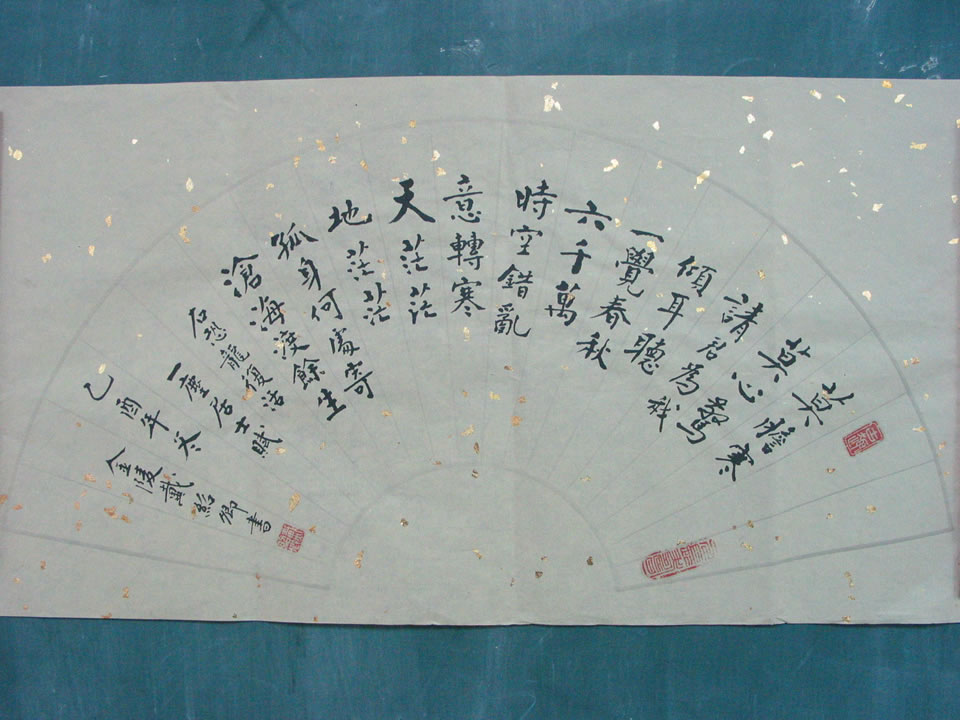 莫膽寒
莫心驚
請君為祥
傾耳聽
一覺春秋
六千萬
時空錯亂
意轉寒
天茫茫
地茫茫
孤身何處寄
滄海渡餘生
右恐龍復活
一塵居士賦
乙酉年冬
金陵戴紹卿書